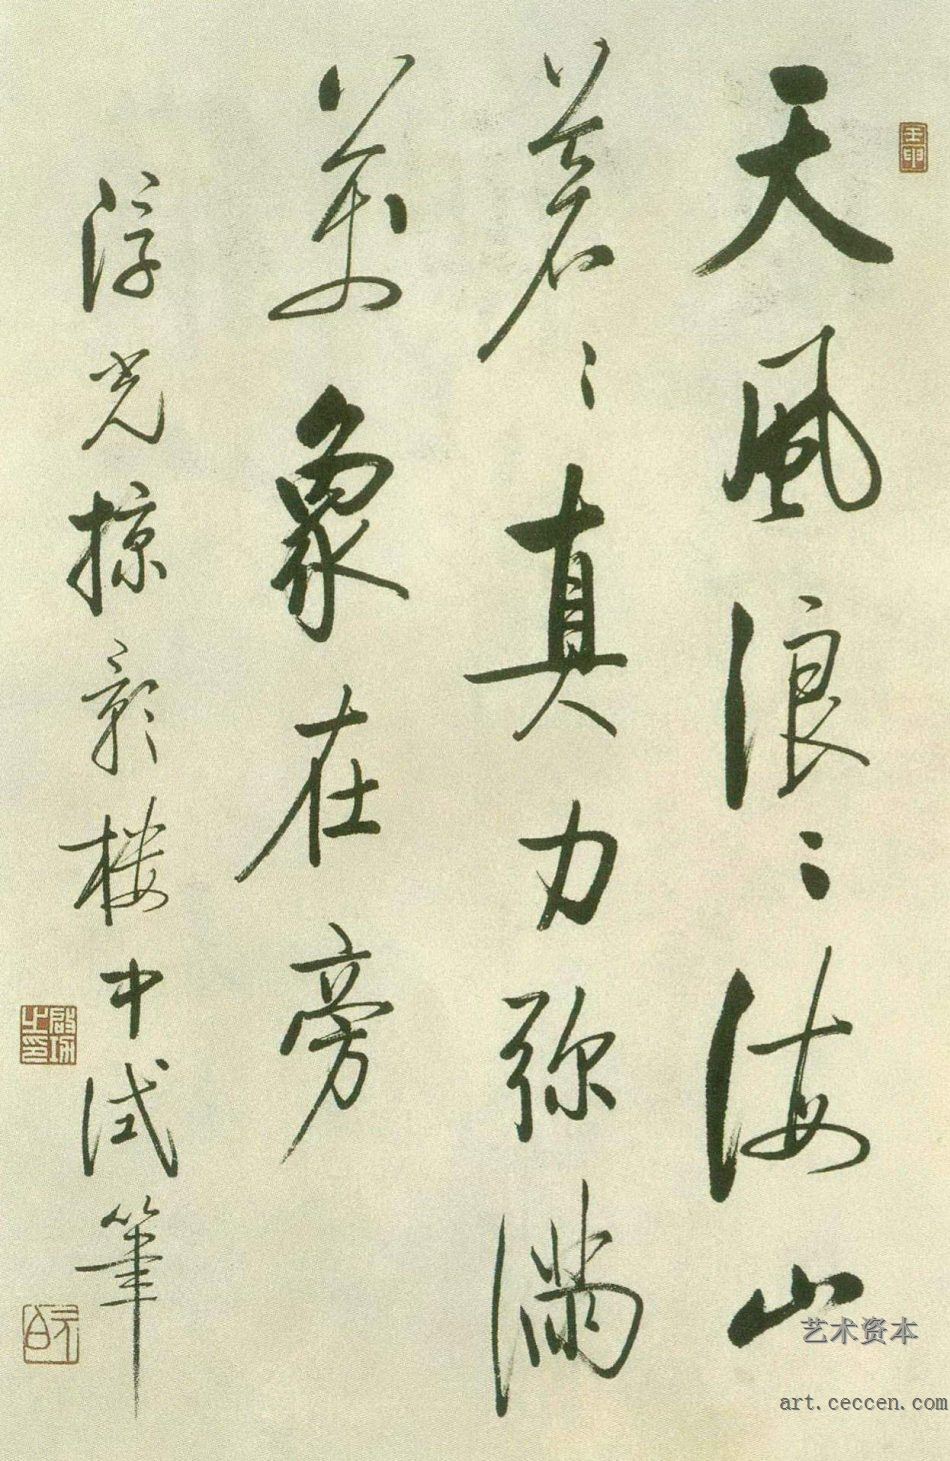 天風浪〻海山
蒼〻真力弥滿
萬象在旁
浮光掠影樓中試筆
啟功之印
元白
艺术资本
art.ceccen.com